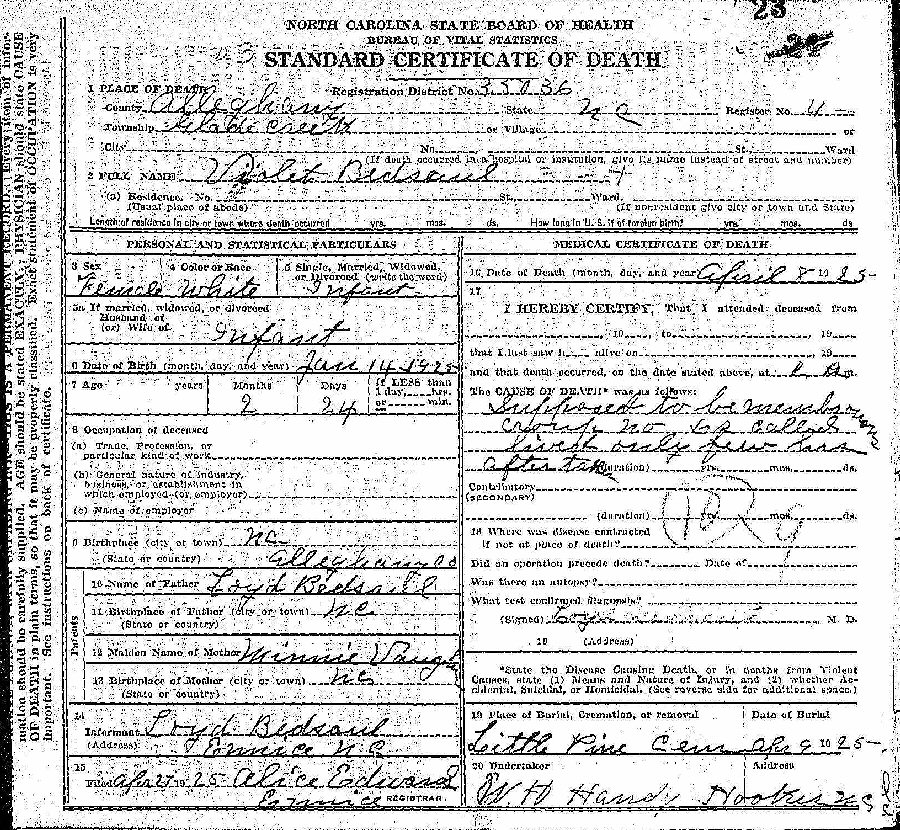 23
NORTH CAROLINA STATE BOARD OF HEALTH
BUREAU OF VITAL STATISTICS
STANDARD CERTIFICATE OF DEATH
1 PLACE OF DEATH
Registration District No. 35036
County Alleghany State NC Register No. 4
Township Glade Creek or Village or
City No. St., Ward
(If death occurred in a hospital or institution, give its name instead of street and number)
2 FULL NAME Violet Bedsaul
(a) Residence. No. St. Ward.
(Usual place of abode) (If nonresident give city or town and State)
Length of residence in city or town where death occurred yrs. mos. ds. How long in U. S. if of foreign birth? yrs. mos. ds.
PERSONAL AND STATISTICAL PARTICULARS
3 Sex 4 Color or Race 5 Single, Married, Widowed, or Divorced (write the word)
Female White Infant
5a If married, widowed, or divorced
Husband of
(or) Wife of Infant
6 Date of Birth (month, day, and year) Jan 14 1925
7 Age years Months Days If LESS than 1 day, hrs. or min.
2 24
8 Occupation of deceased
(a) Trade, Profession, or
particular kind of work
(b) General nature of industry,
business, or establishment in
which employed (or employer)
(c) Name of employer
9 Birthplace (city or town) NC
(State or country) Alleghany Co
Parents
10 Name of Father Loyd Bedsaul
11 Birthplace of Father (city or town) NC
(State or country)
12 Maiden Name of Mother Minnie Vaughn
13 Birthplace of Mother (city or town) NC
(State or country)
14
Informant Loyd Bedsaul
(Address) Ennice N C
15
Filed Apr 27 1925 Alice Edwards
Ennice REGISTRAR
MEDICAL CERTIFICATE OF DEATH
16 Date of Death (month, day, and year April 8 1925
17
I HEREBY CERTIFY, That I attended deceased from
, 19 , to , 19
that I last saw h alive on , 19
and that death occurred, on the date stated above, at m.
The CAUSE OF DEATH* was as follows:
Supposed to be membranous
croup no Dr called
lived only few hrs
after
(duration) yrs. mos. ds.
Contributory
(SECONDARY)
(duration) yrs. mos. ds.
18 Where was disease contracted
if not at place of death?
Did an operation precede death? Date of
Was there an autopsy?
What test confirmed diagnosis?
(Signed) M. D.
19 (Address)
*State the Disease Causing Death, or in deaths from Violent
Causes, state (1) Means and Nature of Injury, and (2) whether Ac-
cidental, Suicidal, or Homicidal. (See reverse side for additional space.)
19 Place of Burial, Cremation, or removal Date of Burial
Little Pine Cem Apr 9 1925
20 Undertaker Address
W. H Handy Hooker NC
mation should be carefully supplied. AGE should be stated EXACTLY. PHYSICIAN should state CAUSE
OF DEATH in plain terms, so that it may be properly classified. Exact statement of OCCUPATION is very
important. See instructions on back of certificate.